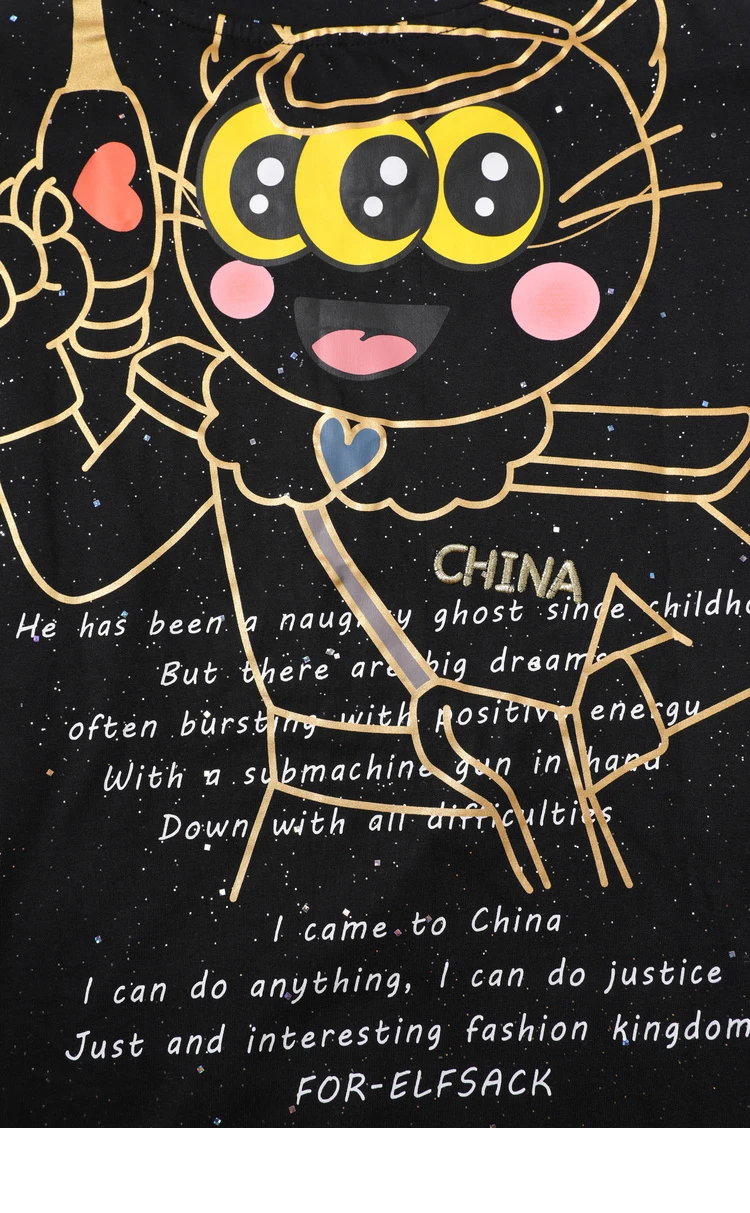 CHINA
He has been a naughty ghost since
But there are big dreams
often bursting with positive energy
With a submachine gun in hand
Down with all difficulties
I came to China
I can do anything, I can do justice
Just and interesting fashion kingdom
FOR-ELFSACK